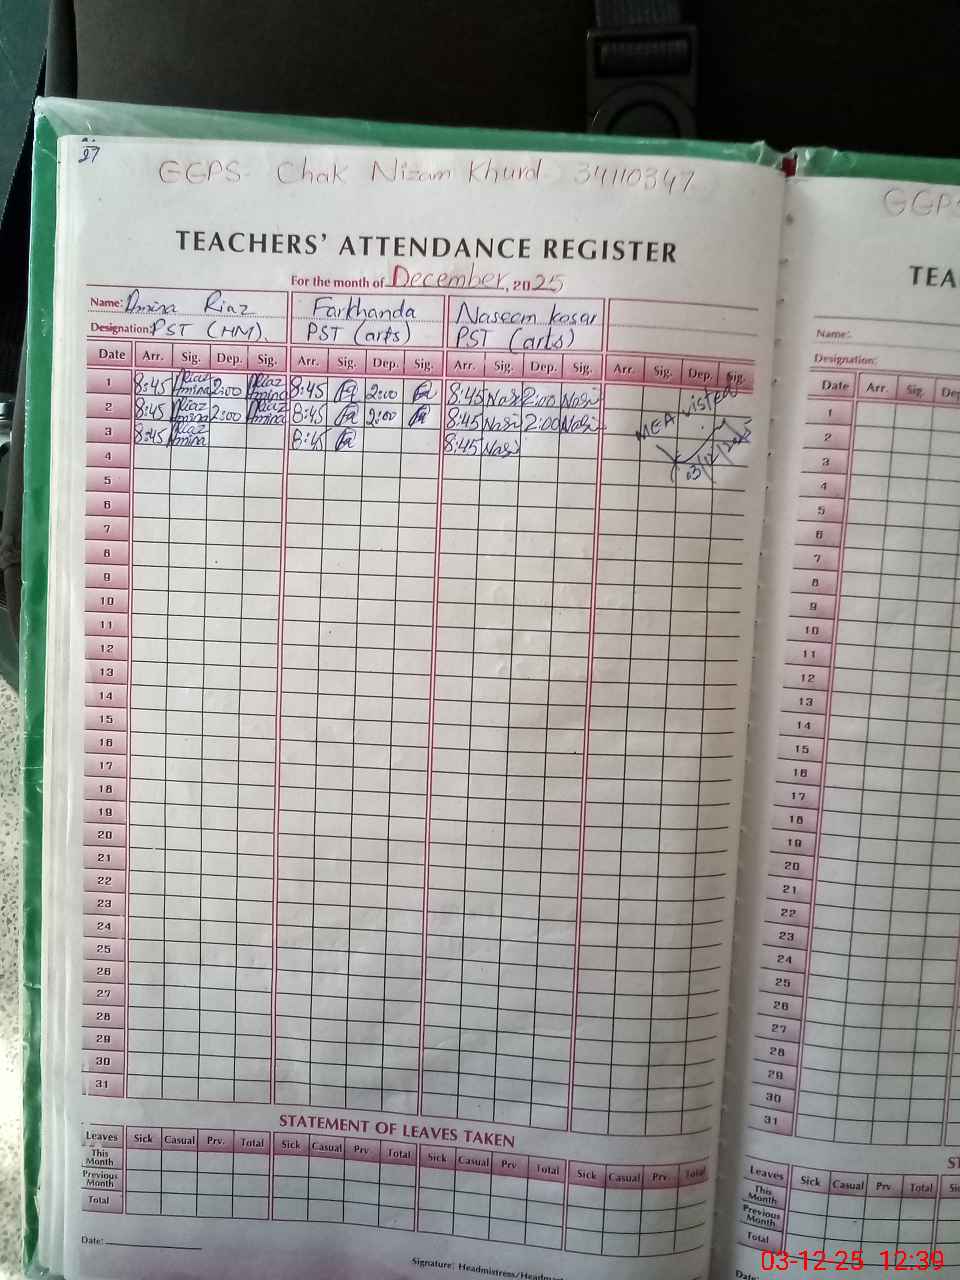 27
GGPS- Chak Nizam Khurd- 34110347
TEACHERS' ATTENDANCE REGISTER
For the month of December, 2025
Name: Amina Riaz Farkhanda Naseem kosar
Designation: PST (HM). PST (arts) PST (arts)
Date Arr. Sig. Dep. Sig. Arr. Sig. Dep. Sig. Arr. Sig. Dep. Sig. Arr. Sig. Dep. Sig.
1 8:45 Riaz Amina 2:00 Riaz Amina 8:45 2:00 8:45 Nasi 2:00 Nasi
2 8:45 Riaz Amina 2:00 Riaz Amina 8:45 2:00 8:45 Nasi 2:00 Nasi
3 8:45 Riaz Amina 8:45 8:45 Nasi
MEA visted
03/12/2025
4
5
6
7
8
9
10
11
12
13
14
15
16
17
18
19
20
21
22
23
24
25
26
27
28
29
30
31
STATEMENT OF LEAVES TAKEN
Leaves Sick Casual Prv. Total Sick Casual Prv. Total Sick Casual Prv. Total Sick Casual Prv. Total
This Month
Previous Month
Total
Date:
Signature: Headmistress/Headma
GGPS
TEA
Name:
Designation:
Date Arr. Sig. Dep
1
2
3
4
5
6
7
8
9
10
11
12
13
14
15
16
17
18
19
20
21
22
23
24
25
26
27
28
29
30
31
ST
Leaves Sick Casual Prv Total Sic
This Month
Previous Month
Total
Date:
03-12-25 12:39